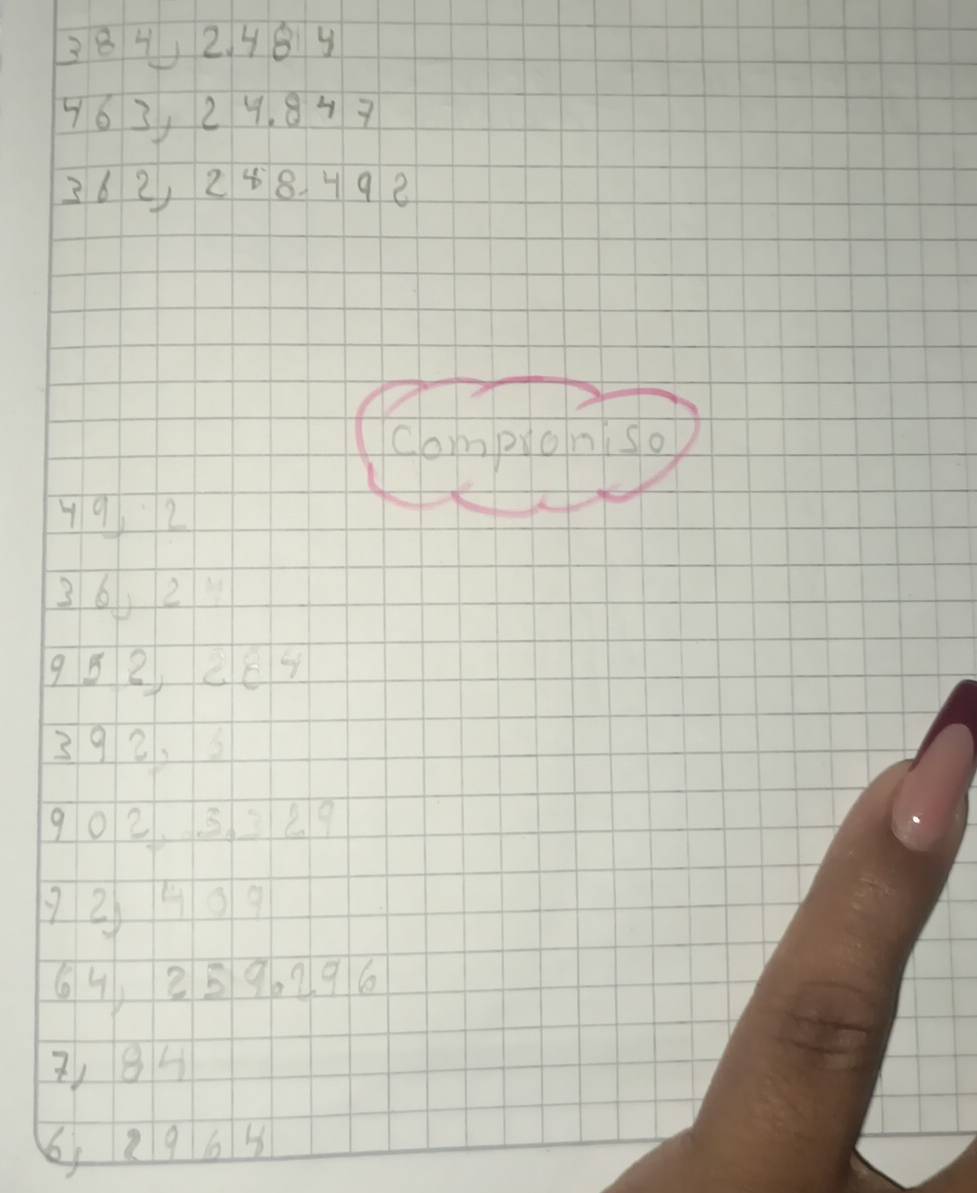 384, 2.484
463, 24.847
362, 248.492
Compromiso
49, 2
36, 24
952, 284
392,
902, 3.329
72, 409
64, 259.296
7, 84
6, 2964